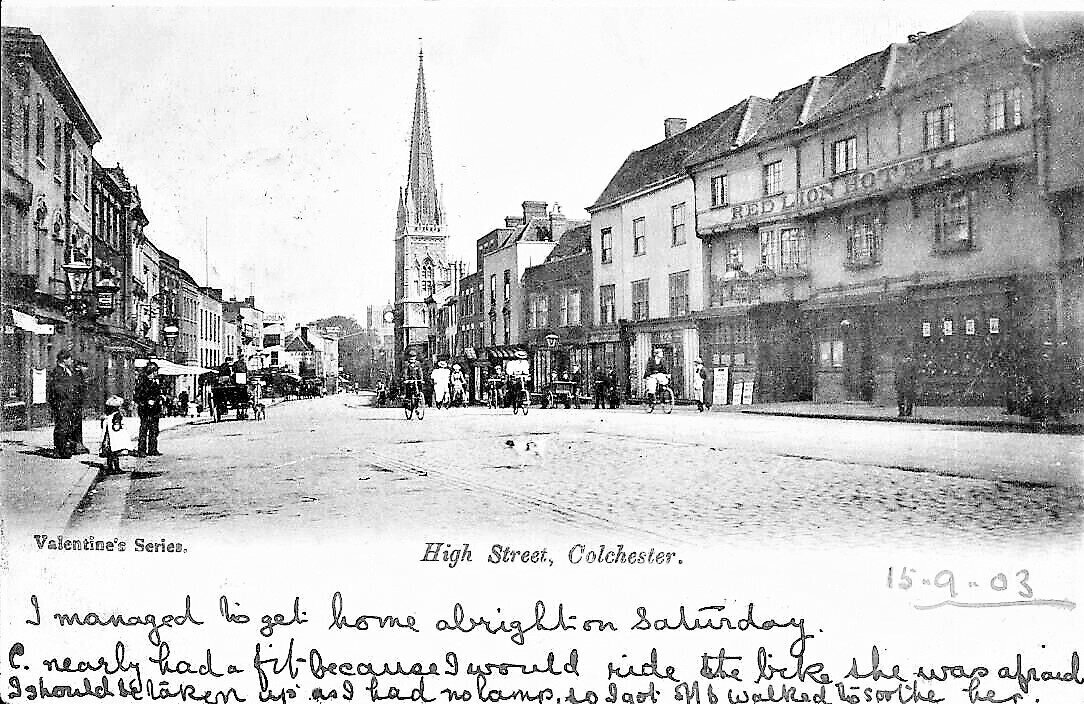 RED LION HOTEL
Valentine's Series.
High Street, Colchester.
15-9-03
I managed to get home abright on Saturday.
C. nearly had a fit because I would ride the bike she was afraid
I should be taken up as I had no lamp, so I got off & walked to soothe her.